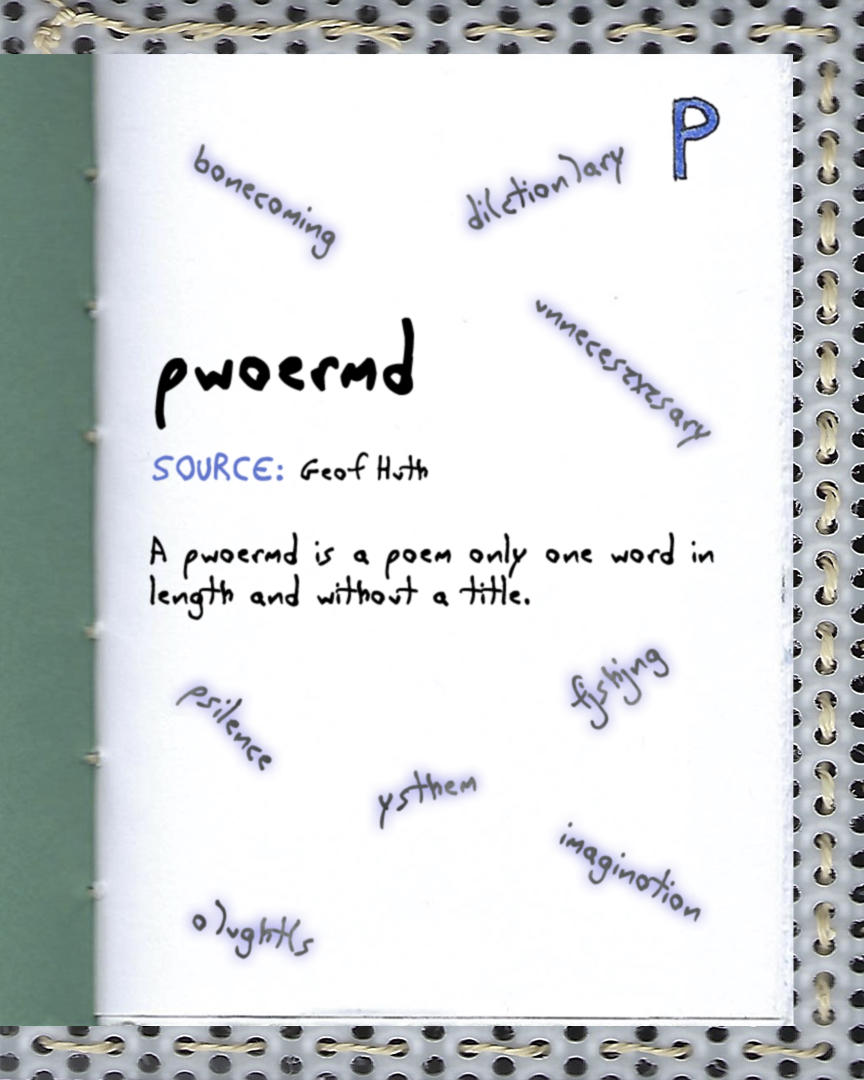 P
bonecoming
di(ction)ary
pwoermd
SOURCE: Geof Huth
A pwoermd is a poem only one word in
length and without a title.
psilence
fjshjng
ysthem
imaginotion
o)ught(s